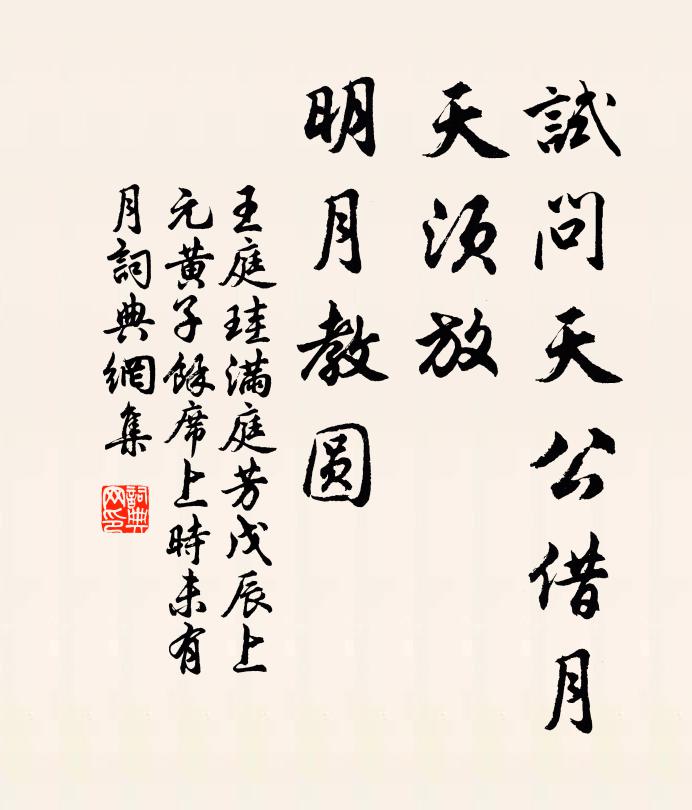 試問天公借月
天須放
明月教圆
王庭珪滿庭芳戊辰上
元黄子餘席上時未有
月詞典網集
詞典
网印